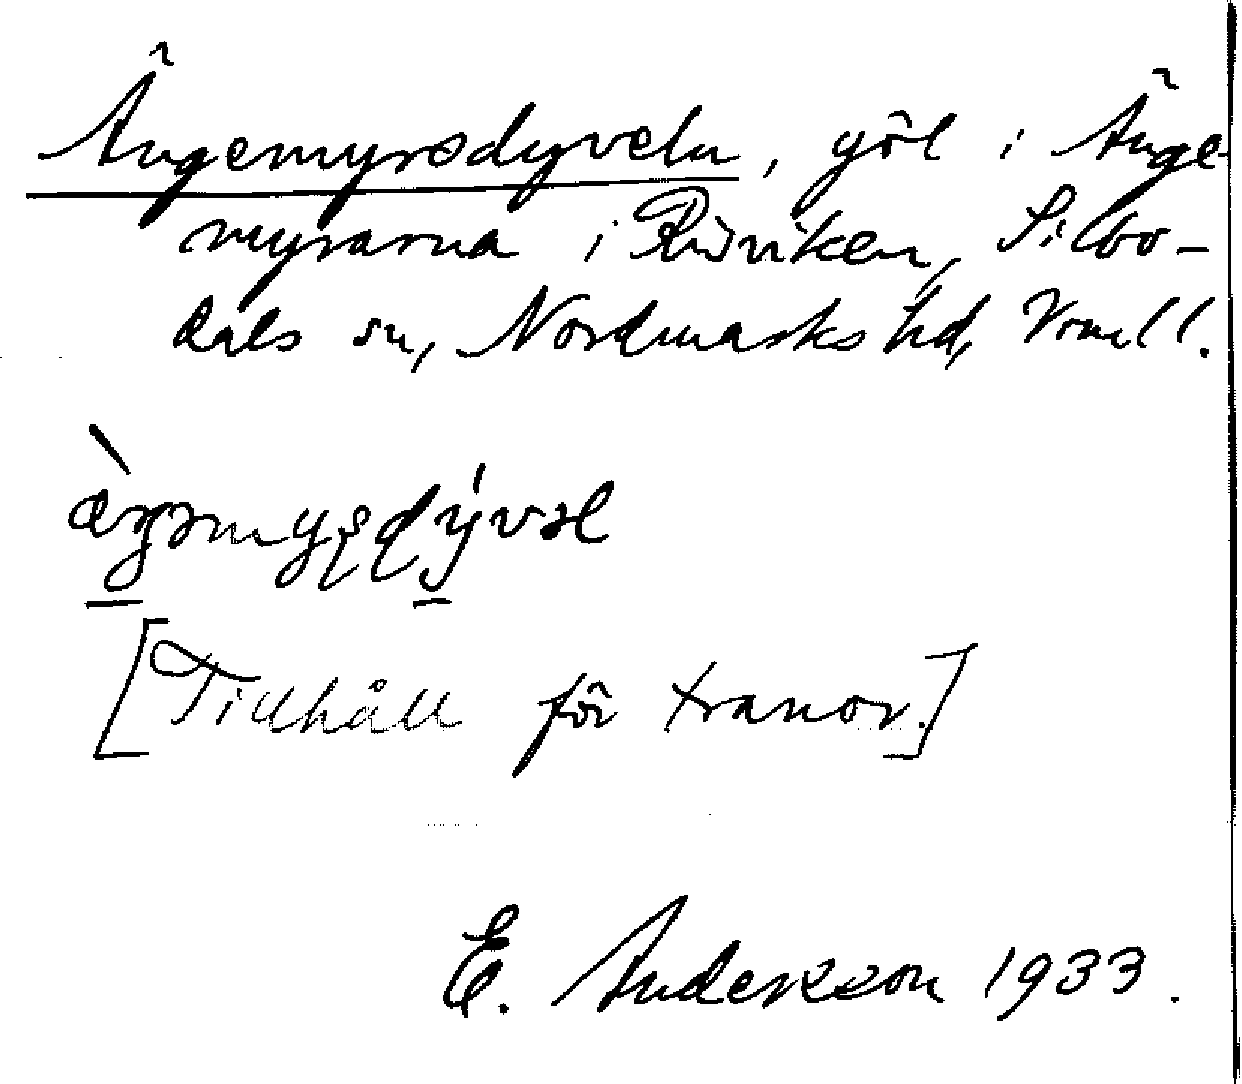 Ängemyrsdyveln, göl i Änge-
myrarna i Röviken, Silbo-
dals sn, Nordmarks hd, Vrml.
[Tillhåll för tranor.]
E. Andersson 1933.